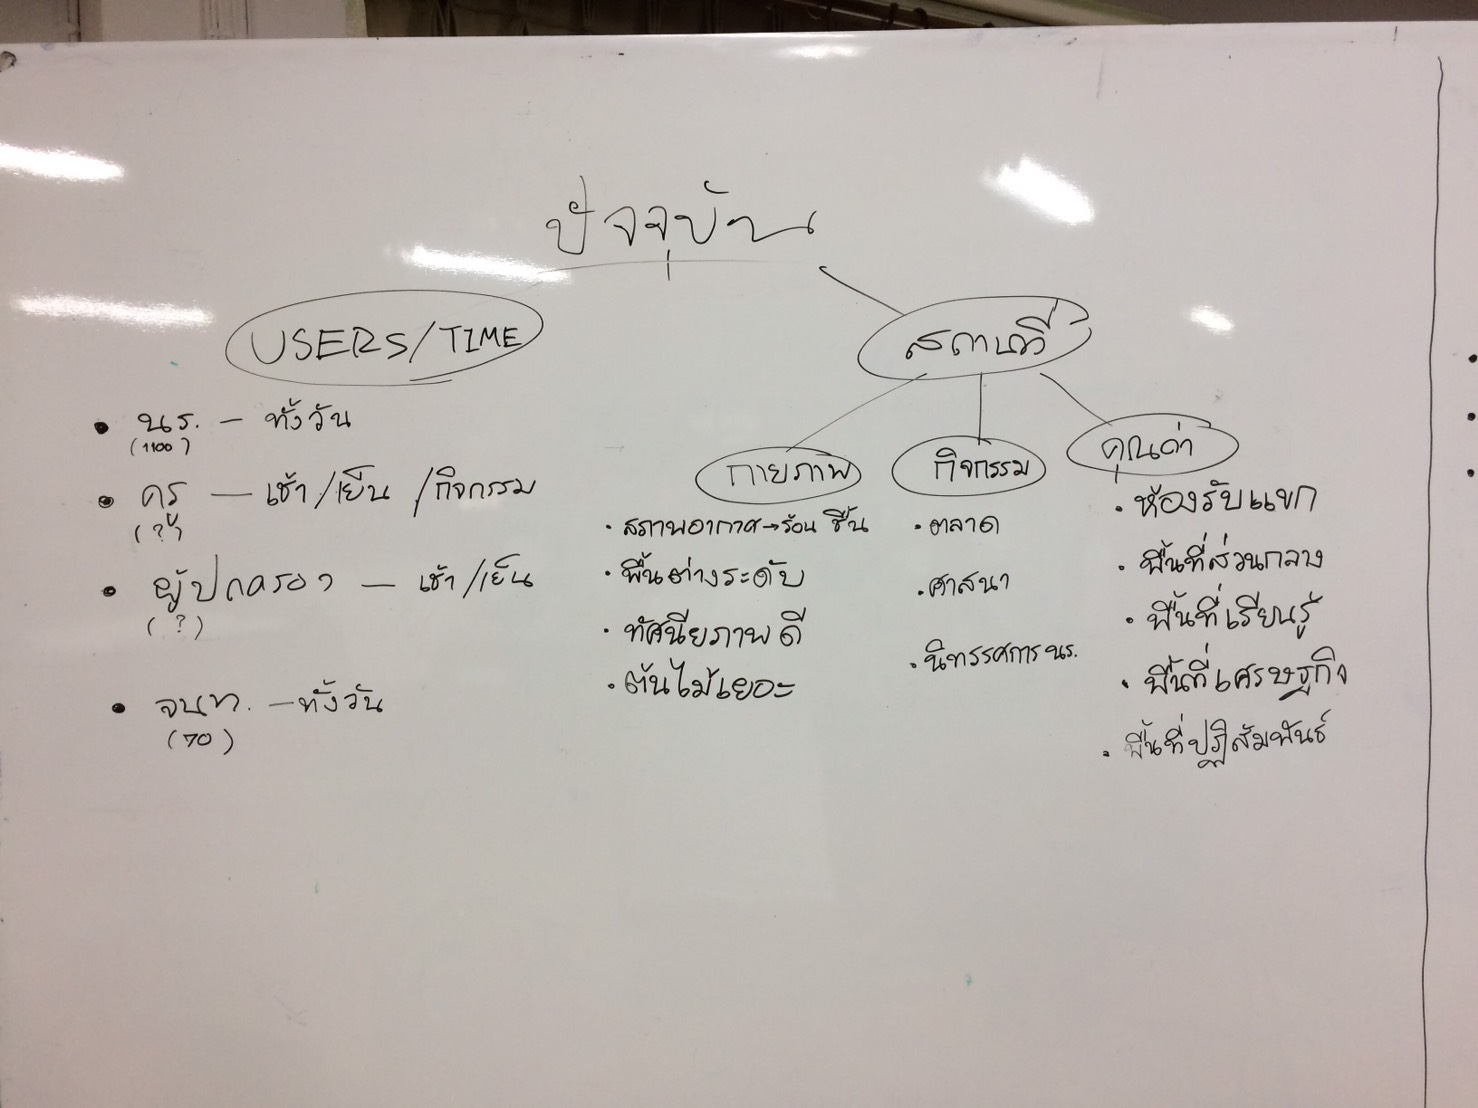 ปัจจุบัน
USERS/TIME
• นร. – ทั้งวัน
(1100)
• ครู – เช้า/เย็น/กิจกรรม
(?)
• ผู้ปกครอง – เช้า/เย็น
(?)
• จนท. – ทั้งวัน
(70)
สถานที่
กายภาพ
· สภาพอากาศ→ร้อน ชื้น
· พื้นต่างระดับ
· ทัศนียภาพดี
· ต้นไม้เยอะ
กิจกรรม
· ตลาด
· ศาสนา
· นิทรรศการ นร.
คุณค่า
· ห้องรับแขก
· พื้นที่ส่วนกลาง
· พื้นที่เรียนรู้
· พื้นที่เศรษฐกิจ
· พื้นที่ปฏิสัมพันธ์